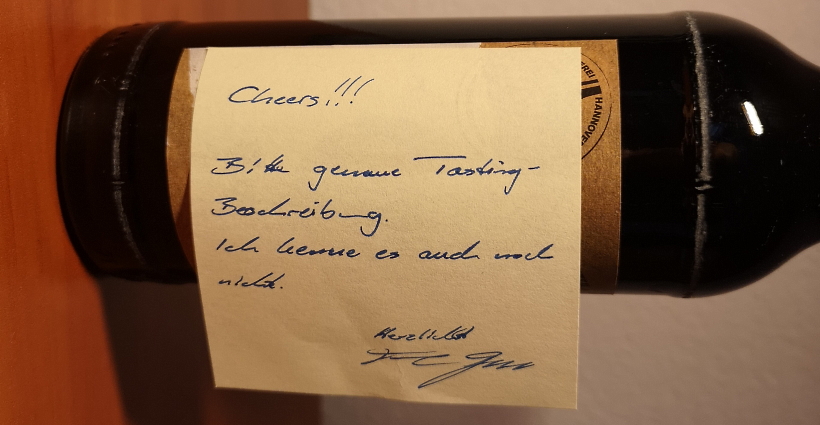 Cheers!!!
Bitte genaue Tasting-
Beschreibung.
Ich kenne es auch noch
nicht.
Herzlichst
HANNOVE